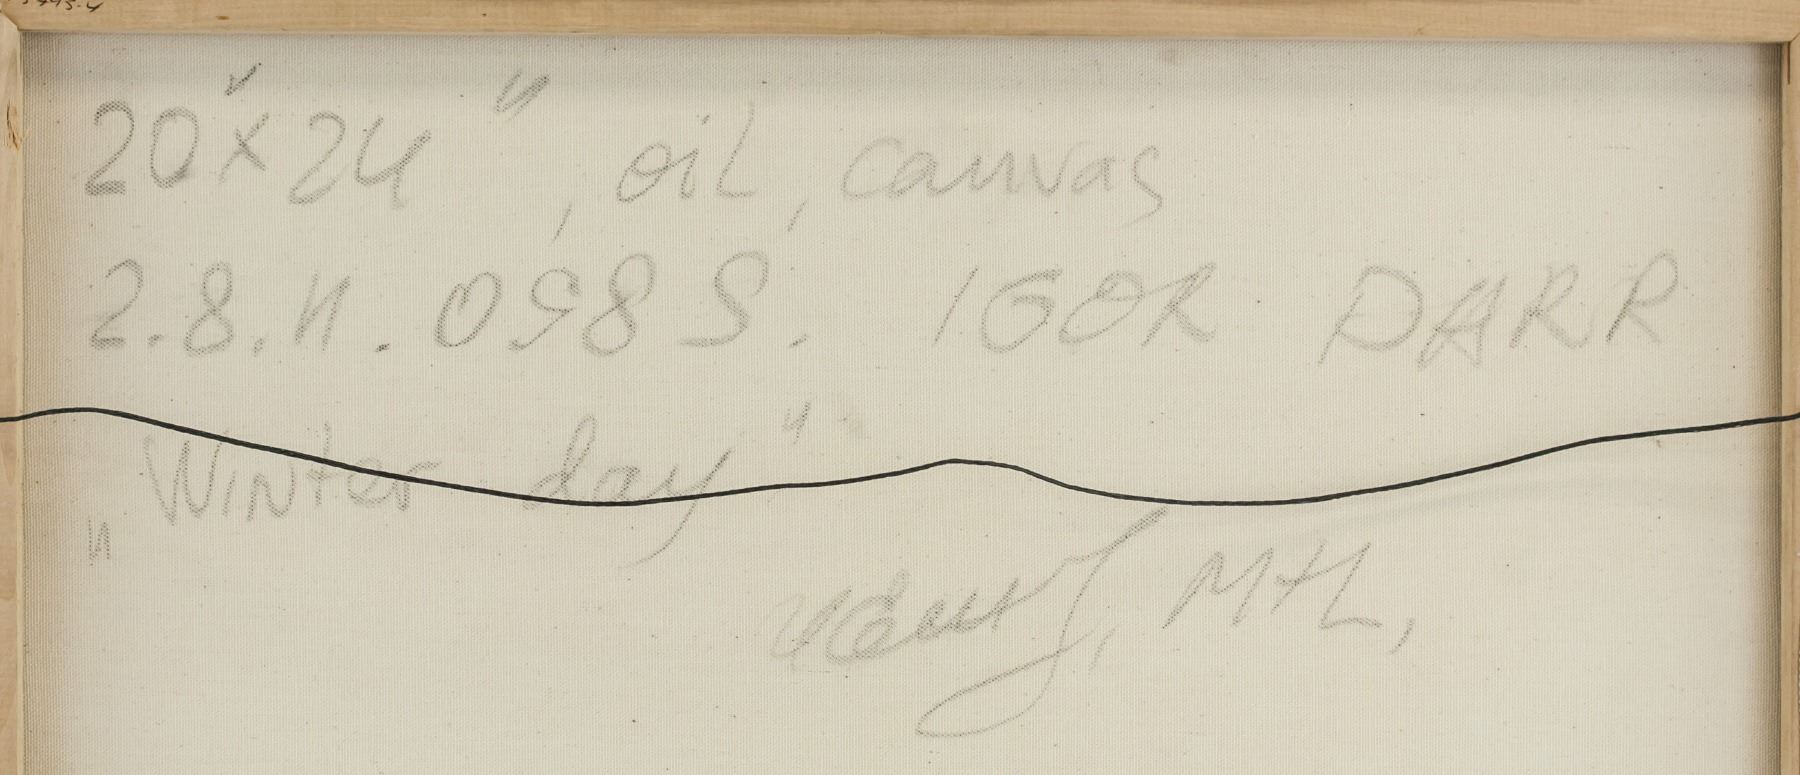 20" x 24", oil, canvas
2.8.11.098 S. IGOR DARR
"Winter day"
MTL,